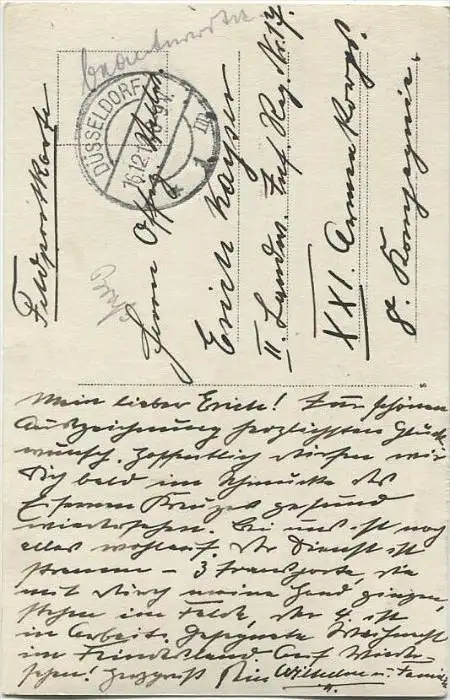 beantwortet.
Feldpostkarte
DÜSSELDORF
16.12.
Herrn Offz. Stellv.
Erich Kayser
II. Landw. Inf. Reg. Nr. 17.
XXI. Armeekorps.
8. Kompagnie.
Mein lieber Erich! Zur schönen
Auszeichnung herzlichsten Glück
wunsch. Hoffentlich dürfen wir
Dich bald im Schmucke des
Eisernen Kreuzes gesund
wiedersehen. Bei uns ist noch
alles wohlauf. Der Dienst ist
stramm – 3 Transporte, die
mit durch meine Hand gingen,
stehen im Felde, der 4. ist
in Arbeit. Gesegnete Weihnacht
im Feindesland Auf Wieder
sehen! Herzgruß Dein Wilhelm u. Familie